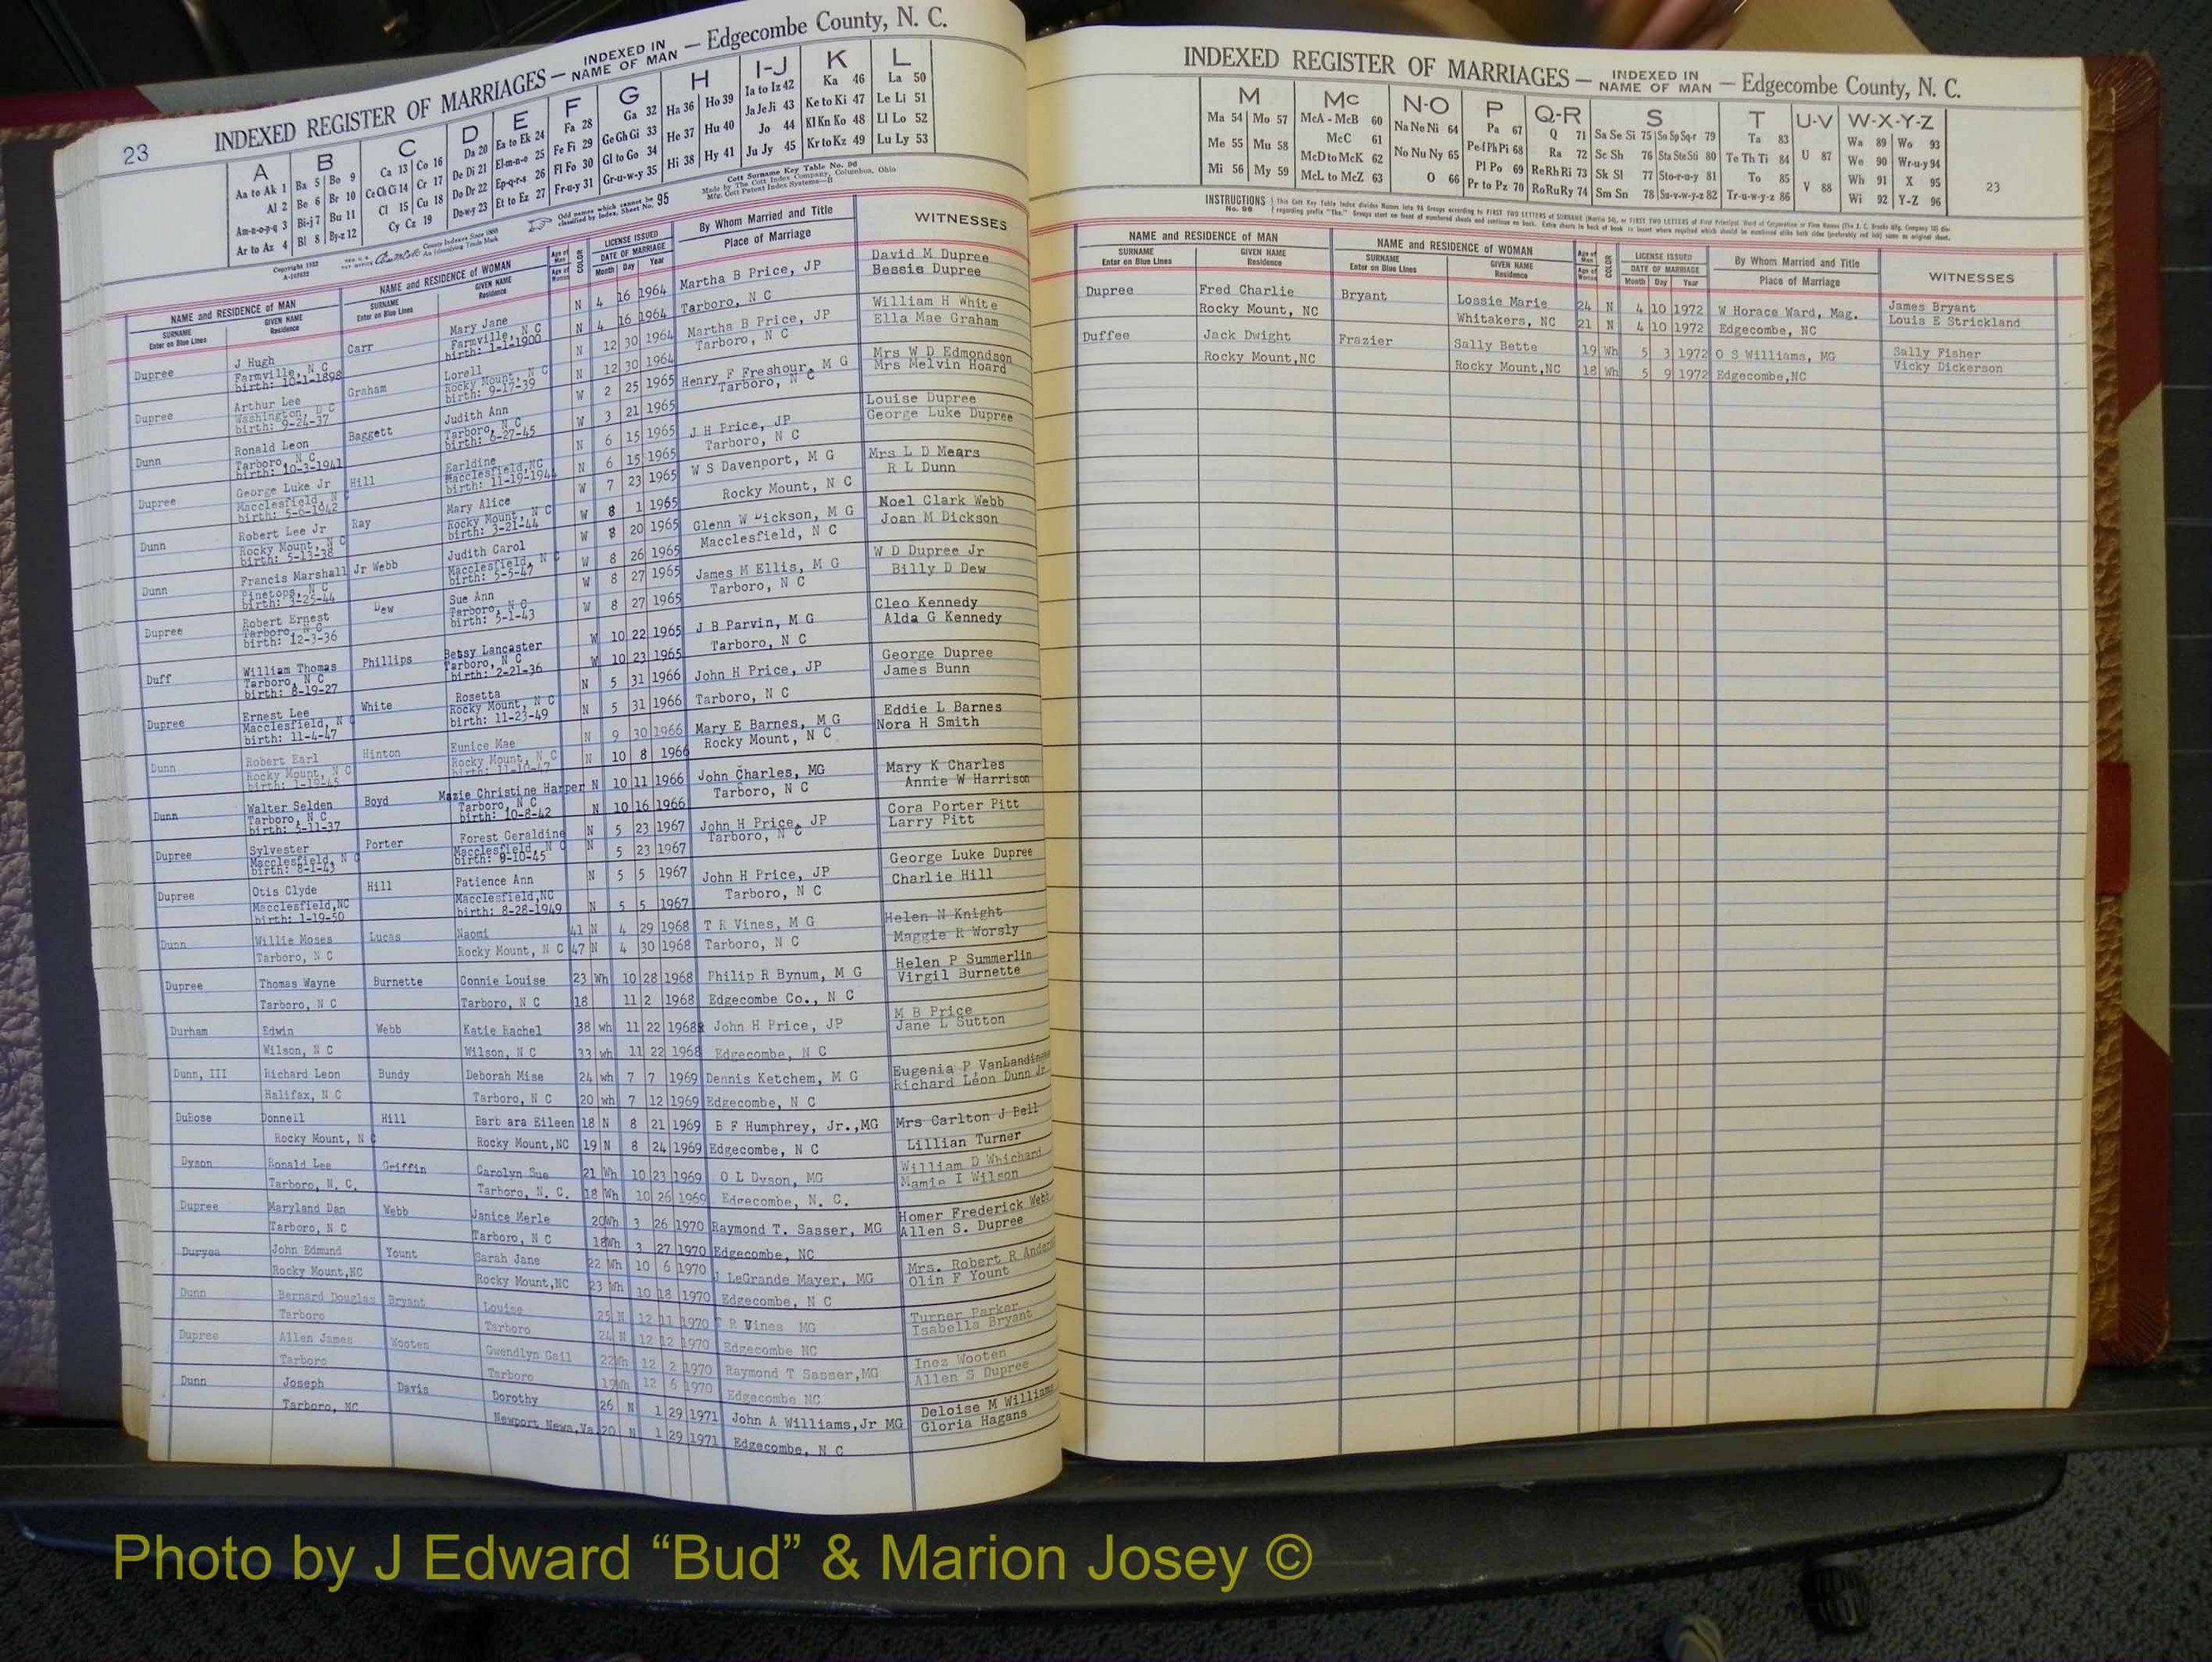 23
INDEXED REGISTER OF MARRIAGES — INDEXED IN NAME OF MAN — Edgecombe County, N. C.
A B C D E F G H I-J K L
Aa to Ak 1 Ba 5 Be 9 Ca 13 Co 16 Da 20 Ea to Ek 24 Fa 28 Ga 32 Ha 36 Ho 39 Ia to Iz 42 Ka 46 La 50
Al 2 Be 6 Br 10 Ce Ch Ci 14 Cr 17 De Di 21 El-m-n-o 25 Fe Fi 29 Ge Gh Gi 33 He 37 Hu 40 Ja Je Ji 43 Ke to Ki 47 Le Li 51
Am-n-o-p-q 3 Bi-j 7 Bu 11 Cl 15 Cu 18 Do Dr 22 Ep-q-r-s 26 Fl Fo 30 Gl to Go 34 Hi 38 Hy 41 Jo 44 Kl Kn Ko 48 Ll Lo 52
Ar to Az 4 Bl 8 By-z 12 Cy Cz 19 Du-w-y 23 Et to Ez 27 Fr-u-y 31 Gr-u-w-y 35 Ju Jy 45 Kr to Kz 49 Lu Ly 53
Odd names which cannot be classified by Index. Sheet No. 95
Cott Surname Key Table No. 96
Made by The Cott Index Company, Columbus, Ohio
Mfg. Cott Patent Index Systems—B
NAME and RESIDENCE of MAN
SURNAME Enter on Blue Lines GIVEN NAME Residence
NAME and RESIDENCE of WOMAN
SURNAME Enter on Blue Lines GIVEN NAME Residence
Age of Man Age of Woman COLOR
LICENSE ISSUED DATE OF MARRIAGE Month Day Year
By Whom Married and Title Place of Marriage
WITNESSES
Dupree J Hugh Carr Mary Jane N 4 16 1964 Martha B Price, JP David M Dupree
Farmville, N C Farmville, N C N 4 16 1964 Tarboro, N C Bessie Dupree
birth: 10-1-1898 birth: 1-1-1900
Dupree Arthur Lee Graham Lorell N 12 30 1964 Martha B Price, JP William H White
Washington, D C Rocky Mount, N C N 12 30 1964 Tarboro, N C Ella Mae Graham
birth: 9-24-37 birth: 9-17-39
Dunn Ronald Leon Baggett Judith Ann W 2 25 1965 Henry F Freshour, M G Mrs W D Edmondson
Tarboro, N C Tarboro, N C W 3 21 1965 Tarboro, N C Mrs Melvin Hoard
birth: 10-3-1941 birth: 6-27-45
Dupree George Luke Jr Hill Earldine N 6 15 1965 J H Price, JP Louise Dupree
Macclesfield, N C Macclesfield, NC N 6 15 1965 Tarboro, N C George Luke Dupree
birth: 11-19-1944
Dunn Robert Lee Jr Ray Mary Alice W 7 23 1965 W S Davenport, M G Mrs L D Mears
Rocky Mount, N C Rocky Mount, N C W 8 1 1965 Rocky Mount, N C R L Dunn
birth: 5-13-38 birth: 3-21-44
Dunn Francis Marshall Jr Webb Judith Carol W 8 20 1965 Glenn W Dickson, M G Noel Clark Webb
Pinetops, N C Macclesfield, N C W 8 26 1965 Macclesfield, N C Joan M Dickson
birth: 5-5-47
Dupree Robert Ernest Dew Sue Ann W 8 27 1965 James M Ellis, M G W D Dupree Jr
Tarboro, N C Tarboro, N C W 8 27 1965 Tarboro, N C Billy D Dew
birth: 12-3-36 birth: 5-1-43
Duff William Thomas Phillips Betsy Lancaster W 10 22 1965 J B Parvin, M G Cleo Kennedy
Tarboro, N C Tarboro, N C W 10 23 1965 Tarboro, N C Alda G Kennedy
birth: 8-19-27 birth: 2-21-36
Dupree Ernest Lee White Rosetta N 5 31 1966 John H Price, JP George Dupree
Macclesfield, N C Rocky Mount, N C N 5 31 1966 Tarboro, N C James Bunn
birth: 11-4-47 birth: 11-23-49
Dunn Robert Earl Hinton Eunice Mae N 9 30 1966 Mary E Barnes, M G Eddie L Barnes
Rocky Mount, N C Rocky Mount, N C N 10 8 1966 Rocky Mount, N C Nora H Smith
birth: 1-19-45 birth: 11-10-47
Dunn Walter Selden Boyd Mazie Christine Harper N 10 11 1966 John Charles, MG Mary K Charles
Tarboro, N C Tarboro, N C N 10 16 1966 Tarboro, N C Annie W Harrison
birth: 5-11-37 birth: 10-8-42
Dupree Sylvester Porter Forest Geraldine N 5 23 1967 John H Price, JP Cora Porter Pitt
Macclesfield, N C Macclesfield, N C N 5 23 1967 Tarboro, N C Larry Pitt
birth: 8-1-43 birth: 9-10-45
Dupree Otis Clyde Hill Patience Ann N 5 5 1967 John H Price, JP George Luke Dupree
Macclesfield,NC Macclesfield,NC N 5 5 1967 Tarboro, N C Charlie Hill
birth: 1-19-50 birth: 8-28-1949
Dunn Willie Moses Lucas Naomi 41 N 4 29 1968 T R Vines, M G Helen N Knight
Tarboro, N C Rocky Mount, N C 47 N 4 30 1968 Tarboro, N C Maggie R Worsly
Dupree Thomas Wayne Burnette Connie Louise 23 Wh 10 28 1968 Philip R Bynum, M G Helen P Summerlin
Tarboro, N C Tarboro, N C 18 11 2 1968 Edgecombe Co., N C Virgil Burnette
Durham Edwin Webb Katie Rachel 38 wh 11 22 1968 John H Price, JP M B Price
Wilson, N C Wilson, N C 33 wh 11 22 1968 Edgecombe, N C Jane L Sutton
Dunn, III Richard Leon Bundy Deborah Mise 24 wh 7 7 1969 Dennis Ketchem, M G Eugenia P VanLanding
Halifax, N C Tarboro, N C 20 wh 7 12 1969 Edgecombe, N C Richard Leon Dunn Jr.
DuBose Donnell Hill Barb ara Eileen 18 N 8 21 1969 B F Humphrey, Jr.,MG Mrs Carlton J Bell
Rocky Mount, N C Rocky Mount,NC 19 N 8 24 1969 Edgecombe, N C Lillian Turner
Dyson Ronald Lee Griffin Carolyn Sue 21 Wh 10 23 1969 O L Dyson, MG William D Whichard
Tarboro, N. C. Tarboro, N. C. 18 Wh 10 26 1969 Edgecombe, N. C. Mamie I Wilson
Dupree Maryland Dan Webb Janice Merle 20 Wh 3 26 1970 Raymond T. Sasser, MG Homer Frederick Webb
Tarboro, N C Tarboro, N C 18 Wh 3 27 1970 Edgecombe, NC Allen S. Dupree
Duryea John Edmund Yount Sarah Jane 22 Wh 10 6 1970 J LeGrande Mayer, MG Mrs. Robert R Anders
Rocky Mount,NC Rocky Mount,NC 23 Wh 10 18 1970 Edgecombe, N C Olin F Yount
Dunn Bernard Douglas Bryant Louise 25 N 12 11 1970 T R Vines MG Turner Parker
Tarboro Tarboro 24 N 12 12 1970 Edgecombe NC Isabella Bryant
Dupree Allen James Wooten Gwendlyn Gail 22 Wh 12 2 1970 Raymond T Sasser,MG Inez Wooten
Tarboro Tarboro 19 Wh 12 6 1970 Edgecombe NC Allen S Dupree
Dunn Joseph Davis Dorothy 26 N 1 29 1971 John A Williams,Jr MG Deloise M Williams
Tarboro, NC Newport News,Va 20 N 1 29 1971 Edgecombe, N C Gloria Hagans
INDEXED REGISTER OF MARRIAGES — INDEXED IN NAME OF MAN — Edgecombe County, N. C.
M Mc N-O P Q-R S T U-V W-X-Y-Z
Ma 54 Mo 57 McA - McB 60 Na Ne Ni 64 Pa 67 Q 71 Sa Se Si 75 So Sp Sq-r 79 Ta 83 U 87 Wa 89 Wo 93
Me 55 Mu 58 McC 61 No Nu Ny 65 Pe-f Ph Pi 68 Ra 72 Sc Sh 76 Sta Ste Sti 80 Te Th Ti 84 V 88 We 90 Wr-u-y 94
Mi 56 My 59 McD to McK 62 O 66 Pl Po 69 Re Rh Ri 73 Sk Sl 77 Sto-r-u-y 81 To 85 Wh 91 X 95
McL to McZ 63 Pr to Pz 70 Ro Ru Ry 74 Sm Sn 78 Su-v-w-y-z 82 Tr-u-w-y-z 86 Wi 92 Y-Z 96
23
INSTRUCTIONS
NAME and RESIDENCE OF MAN
SURNAME Enter on Blue Lines GIVEN NAME Residence
NAME and RESIDENCE OF WOMAN
SURNAME Enter on Blue Lines GIVEN NAME Residence
Age of Man Age of Woman COLOR
LICENSE ISSUED DATE OF MARRIAGE Month Day Year
By Whom Married and Title Place of Marriage
WITNESSES
Dupree Fred Charlie Bryant Lossie Marie 24 N 4 10 1972 W Horace Ward, Mag. James Bryant
Rocky Mount, NC Whitakers, NC 21 N 4 10 1972 Edgecombe, NC Louis E Strickland
Duffee Jack Dwight Frazier Sally Bette 19 Wh 5 3 1972 O S Williams, MG Sally Fisher
Rocky Mount,NC Rocky Mount,NC 18 Wh 5 9 1972 Edgecombe,NC Vicky Dickerson
Photo by J Edward “Bud” & Marion Josey ©